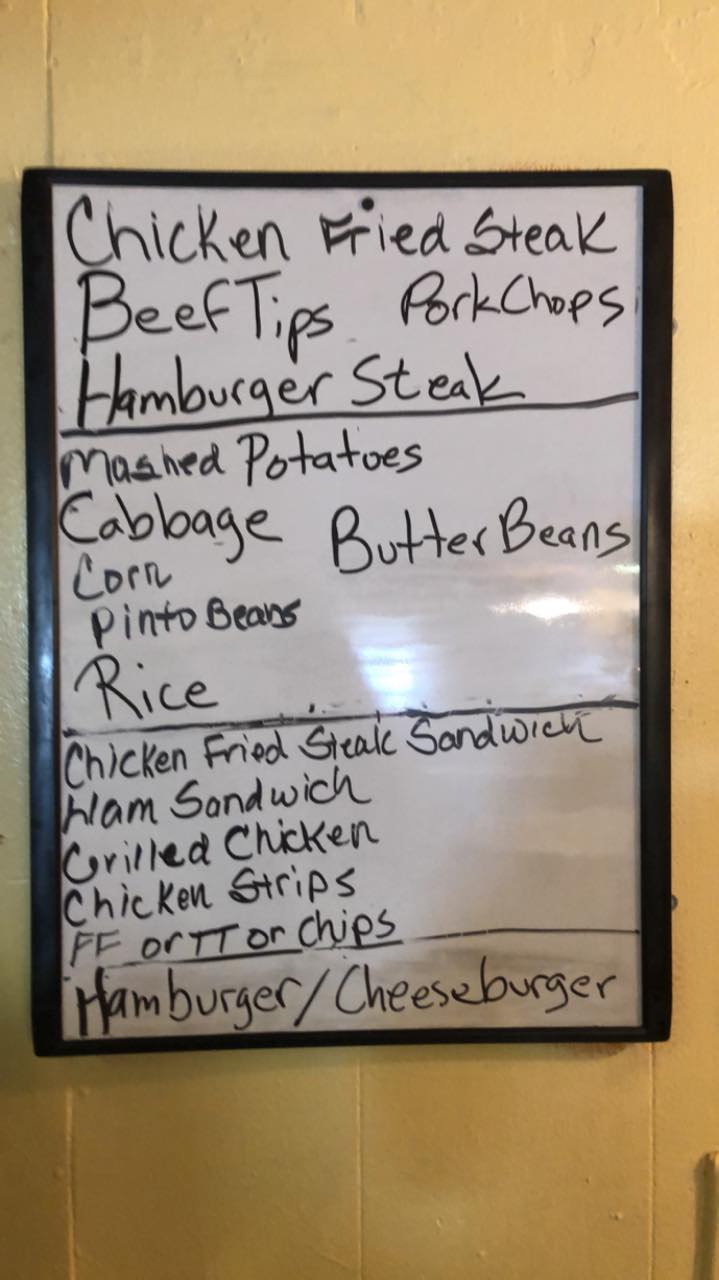 Chicken Fried Steak
Beef Tips Pork Chops
Hamburger Steak
Mashed Potatoes
Cabbage Butter Beans
Corn
Pinto Beans
Rice
Chicken Fried Steak Sandwich
Ham Sandwich
Grilled Chicken
Chicken Strips
FF or TT or Chips
Hamburger/Cheeseburger